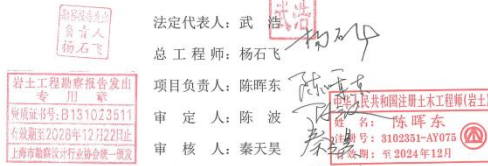 勘察报告发出
负责人
杨石飞
岩土工程勘察报告发出
专用章
资质证书号:B131023511
有效期至2028年12月22日止
上海市勘察设计行业协会统一颁发
武浩
法定代表人：武 浩
总工程师：杨石飞
杨石飞
项目负责人：陈晖东
陈晖东
审定人：陈 波
陈波
审核人：秦天昊
秦天昊
中华人民共和国注册土木工程师(岩土)
姓名：陈晖东
注册号：3102351-AY075
有效期：至2024年12月